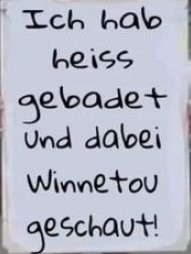 Ich hab
heiss
gebadet
und dabei
Winnetou
geschaut!